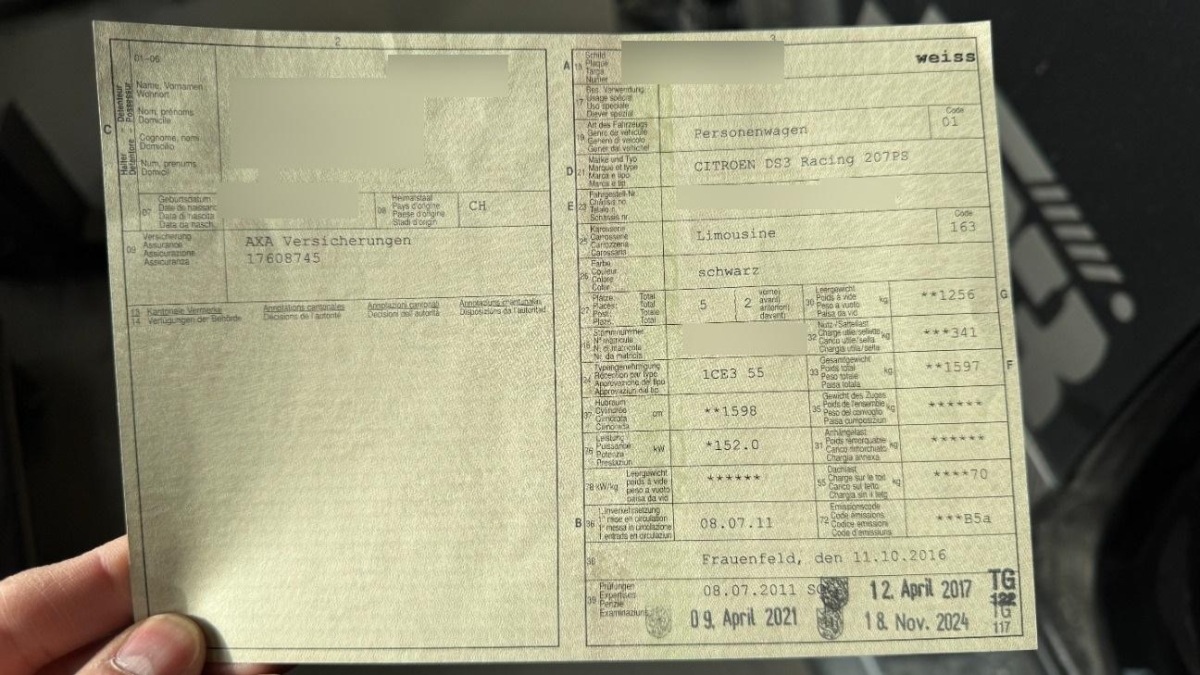 2
01-06
C
Halter - Détenteur
Detentore - Possessur
Name, Vornamen
Wohnort
Nom, prénoms
Domicile
Cognome, nomi
Domicilio
Num, prenums
Domicil
07
Geburtsdatum
Date de naissance
Data di nascita
Data da nasch.
08
Heimatstaat
Pays d'origine
Paese d'origine
Stadi d'origin
CH
09
Versicherung
Assurance
Assicurazione
Assicuranza
AXA Versicherungen
17608745
13
14
Kantonale Vermerke
Verfügungen der Behörde
Annotations cantonales
Décisions de l'autorité
Annotazioni cantonali
Decisioni dell'autorità
Annotaziuns chantunalas
Disposiziuns da l'autoritad
3
A
15
Schild
Plaque
Targa
Numer
weiss
17
Bes. Verwendung
Usage spécial
Uso speciale
Diever spezial
19
Art des Fahrzeugs
Genre de véhicule
Genere di veicolo
Gener dal vehichel
Personenwagen
Code
01
D
21
Marke und Typ
Marque et type
Marca e tipo
Marca e tip
CITROEN DS3 Racing 207PS
E
23
Fahrgestell-Nr.
Châssis no.
Telaio n.
Schassis nr.
25
Karosserie
Carrosserie
Carrozzeria
Carossaria
Limousine
Code
163
26
Farbe
Couleur
Colore
Color
schwarz
27
Plätze: Total
Places: Total
Posti: Totale
Plazs: Total
5
2
vorne
avant
anteriori
davant
30
Leergewicht
Poids à vide
Peso a vuoto
Paisa da vid
kg
**1256
G
18
Stammnummer
N° matricule
N. di matricola
Nr. da matricla
32
Nutz-/Sattellast
Charge utile/sellette
Carico utile/sella
Chargia utila/sella
kg
***341
24
Typengenehmigung
Réception par type
Approvazione del tipo
Approvaziun dal tip
1CE3 55
33
Gesamtgewicht
Poids total
Peso totale
Paisa totala
kg
**1597
F
37
Hubraum
Cylindrée
Cilindrata
Cilindrada
cm
**1598
35
Gewicht des Zuges
Poids de l'ensemble
Peso del convoglio
Paisa cumposiziun
kg
******
76
Leistung
Puissance
Potenza
Prestaziun
kW
*152.0
31
Anhängelast
Poids remorquable
Carico rimorchiato
Chargia annexa
kg
******
78
kW/kg
Leergewicht
poids à vide
peso a vuoto
paisa da vid
******
55
Dachlast
Charge sur le toit
Carico sul tetto
Chargia sin il tetg
kg
****70
B
36
1. Inverkehrsetzung
1re mise en circulation
1. messa in circolazione
1. entrada en circulaziun
08.07.11
72
Emissionscode
Code émissions
Codice emissioni
Code d'emissiuns
***B5a
38
Frauenfeld, den 11.10.2016
39
Prüfungen
Expertises
Perizie
Examinaziuns
08.07.2011
12. April 2017
TG
122
09. April 2021
18. Nov. 2024
TG
117